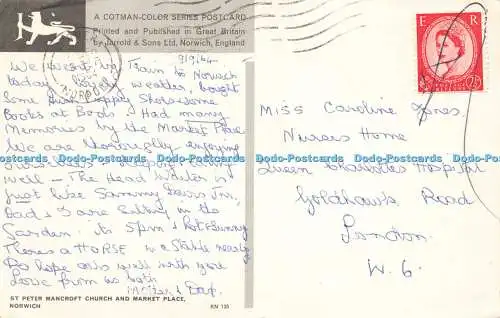 A COTMAN-COLOR SERIES POSTCARD
Printed and Published in Great Britain
by Jarrold & Sons Ltd, Norwich, England
E R
2½D
NORFOLK
9/9/64
We went by Train to Norwich
today. weather, bought
some Shoes & some
Books at Boots. Had many
Memories by the Market Place
We are thoroughly enjoying
well – The Head Waiter is
just like Sammy Davis Jnr,
Dad & I are sitting in the
Garden. Its 5pm & Hot & Sunny
Theres a HORSE in a Stable nearby
Do hope all's well with you
Love from us both
Mother & Dad.
Miss Caroline Jones.
Nurses Home
Queen Charlottes Hospital
Goldhawk Road
London
W. 6.
ST PETER MANCROFT CHURCH AND MARKET PLACE,
NORWICH
KN 135
UK-Postcards UK-Postcards UK-Postcards